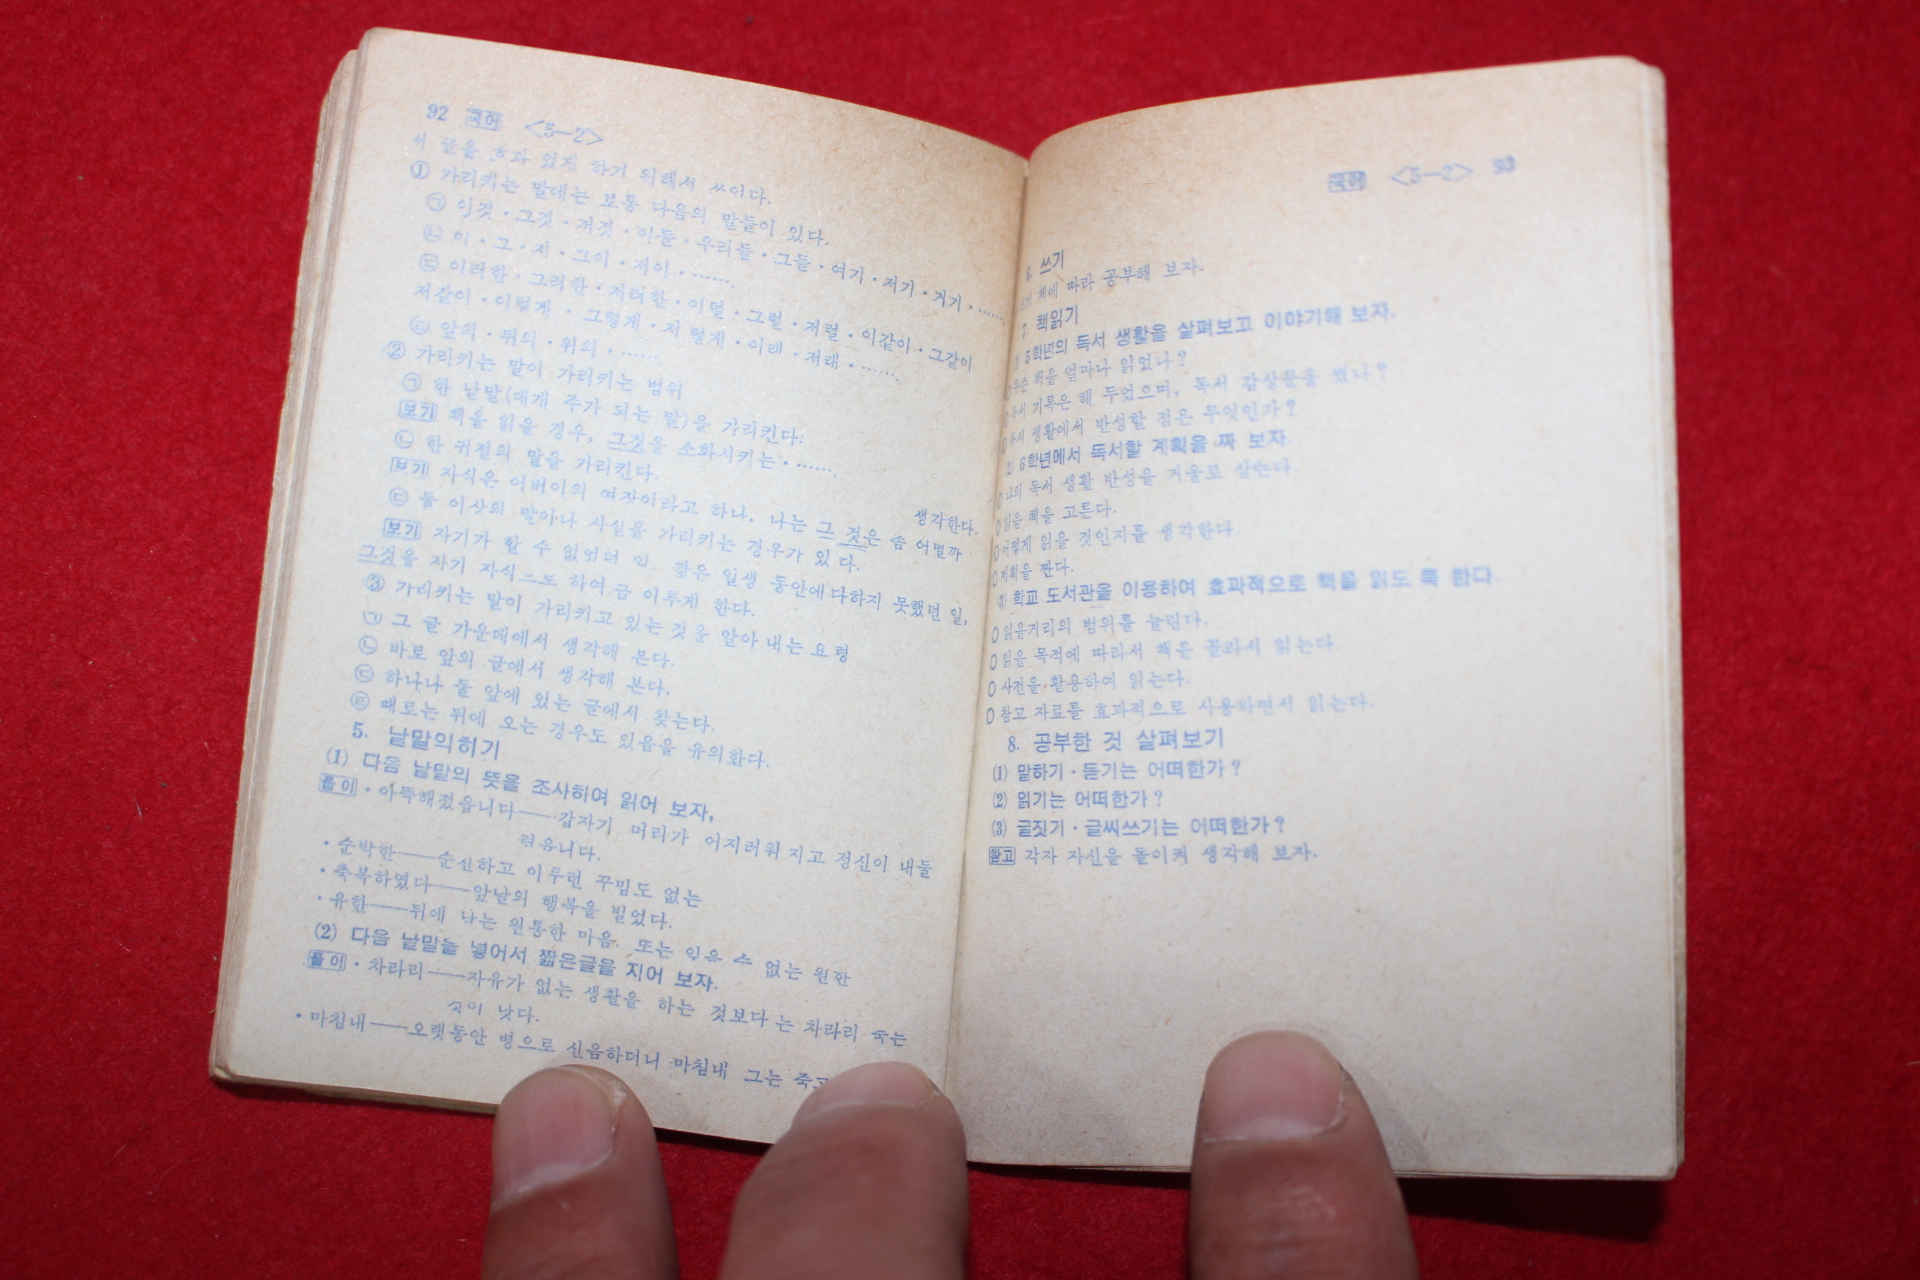 92 국어 <5—2>
서 글을 효과 있게 하기 위해서 쓰이다.
① 가리키는 말에는 보통 다음의 말들이 있다.
㉠ 이것·그것·저것·이들·우리들·그들·여기·저기·거기·……
㉡ 이·그·저·그이·저이·…….
㉢ 이러한·그러한·저러한·이럴·그럴·저럴·이같이·그같이
저같이·이렇게·그렇게·저렇게·이래·저래·…….
㉣ 앞의·뒤의·위의·…….
② 가리키는 말이 가리키는 범위
㉠ 한 낱말(대개 주가 되는 말)을 가리킨다:
보기 책을 읽을 경우, 그것을 소화시키는·…….
㉡ 한 귀절의 말을 가리킨다.
생각한다.
보기 자식은 어버이의 여장이라고 하나, 나는 그 것은 좀 어떨까
㉢ 둘 이상의 말이나 사실을 가리키는 경우가 있다.
보기 자기가 할 수 없었던 일, 같은 일생 동안에 다하지 못했던 일,
그것을 자기 자식으로 하여금 이루게 한다.
③ 가리키는 말이 가리키고 있는 것을 알아 내는 요령
㉠ 그 글 가운데에서 생각해 본다.
㉡ 바로 앞의 글에서 생각해 본다.
㉢ 하나나 둘 앞에 있는 글에서 찾는다.
㉣ 때로는 뒤에 오는 경우도 있음을 유의한다.
5. 낱말익히기
(1) 다음 낱말의 뜻을 조사하여 읽어 보자,
풀이·아뜩해졌읍니다——갑자기 머리가 어지러워지고 정신이 내둘
렸읍니다.
·순박한——순진하고 아무런 꾸밈도 없는
·축복하였다——앞날의 행복을 빌었다.
·유한——뒤에 남는 원통한 마음, 또는 잊을 수 없는 원한
(2) 다음 낱말을 넣어서 짧은글을 지어 보자.
풀이·차라리——자유가 없는 생활을 하는 것보다는 차라리 죽는
것이 낫다.
·마침내——오랫동안 병으로 신음하더니 마침내 그는 죽고
국어 <5—2> 93
6. 쓰기
쓰기 책에 따라 공부해 보자.
7. 책읽기
(1) 5학년의 독서 생활을 살펴보고 이야기해 보자.
○무슨 책을 얼마나 읽었나?
○독서 기록은 해 두었으며, 독서 감상문을 썼나?
○독서 생활에서 반성할 점은 무엇인가?
(2) 6학년에서 독서할 계획을 짜 보자.
○나의 독서 생활 반성을 거울로 삼는다.
○읽을 책을 고른다.
○어떻게 읽을 것인지를 생각한다.
○계획을 짠다.
(3) 학교 도서관을 이용하여 효과적으로 책을 읽도록 한다.
○읽을거리의 범위를 늘린다.
○읽을 목적에 따라서 책을 골라서 읽는다.
○사전을 활용하여 읽는다.
○참고 자료를 효과적으로 사용하면서 읽는다.
8. 공부한 것 살펴보기
(1) 말하기·듣기는 어떠한가?
(2) 읽기는 어떠한가?
(3) 글짓기·글씨쓰기는 어떠한가?
참고 각자 자신을 돌이켜 생각해 보자.